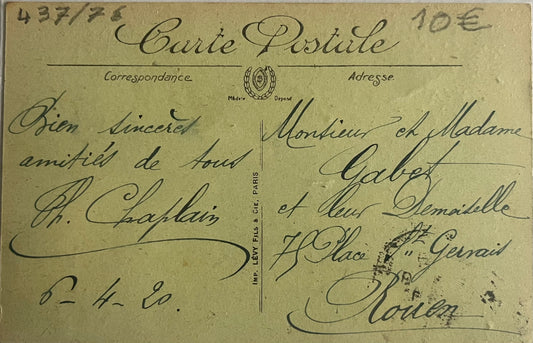 437/76
10€
Carte Postale
Correspondance
Adresse
Modèle Déposé
Bien sincères
amitiés de tous
Th. Chaplain
6-4-20.
IMP. LÉVY FILS & CIE, PARIS
Monsieur et Madame
Gabet
et leur Demoiselle
75 Place St Gervais
Rouen